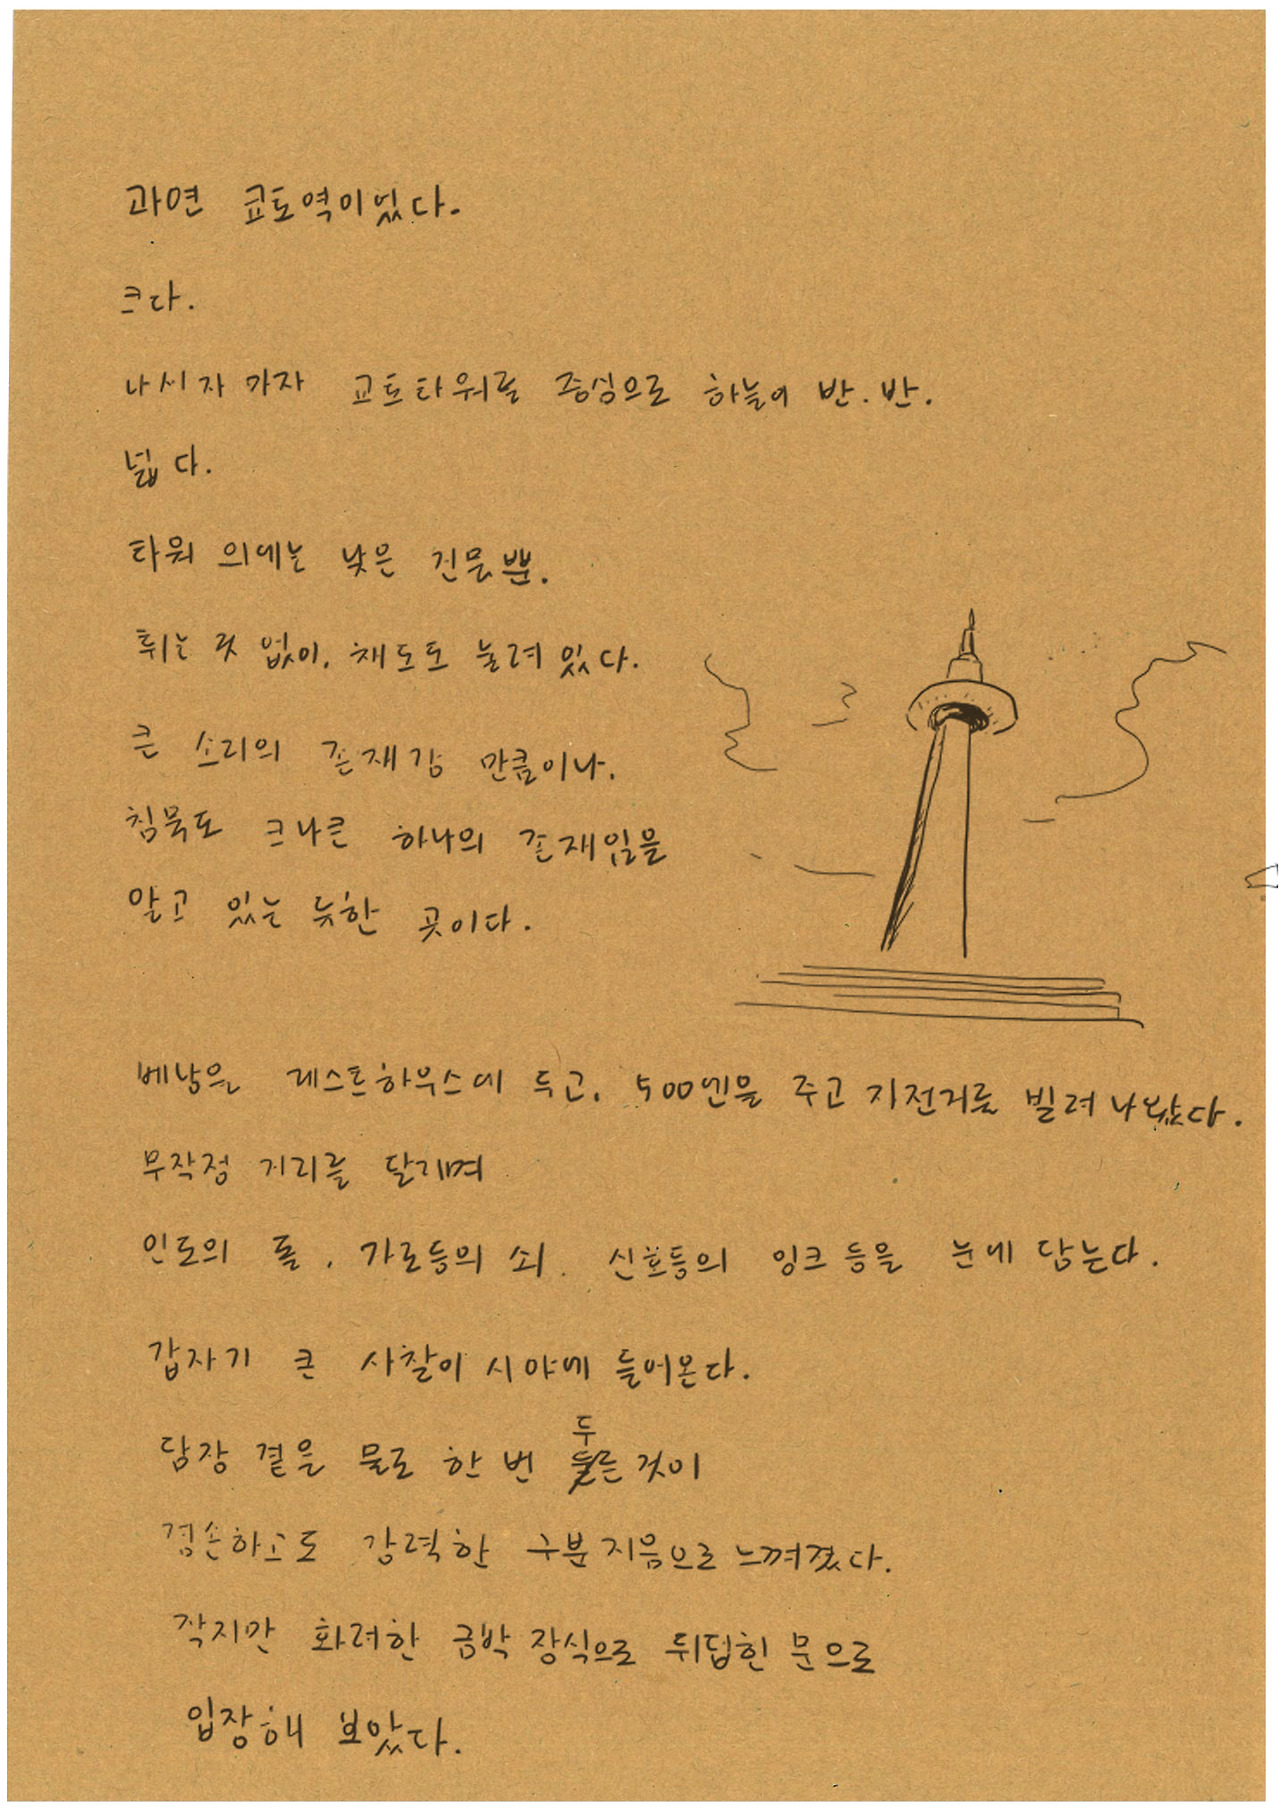 과연 쿄토역이었다.
크다.
나서자마자 교토타워를 중심으로 하늘이 반. 반.
넓다.
타워 외에는 낮은 건물뿐.
튀는 것 없이. 채도도 눌려 있다.
큰 소리의 존재감 만큼이나.
침묵도 크나큰 하나의 존재임을
알고 있는 듯한 곳이다.
베낭을 레스트하우스에 두고. 500엔을 주고 자전거를 빌려 나왔다.
무작정 거리를 달리며
인도의 돌. 가로등의 쇠. 신호등의 잉크 등을 눈에 담는다.
갑자기 큰 사찰이 시야에 들어온다.
담장 곁을 물로 한 번 두른 것이
겸손하고도 강력한 구분 지음으로 느껴졌다.
작지만 화려한 금박 장식으로 뒤덮힌 문으로
입장해 보았다.